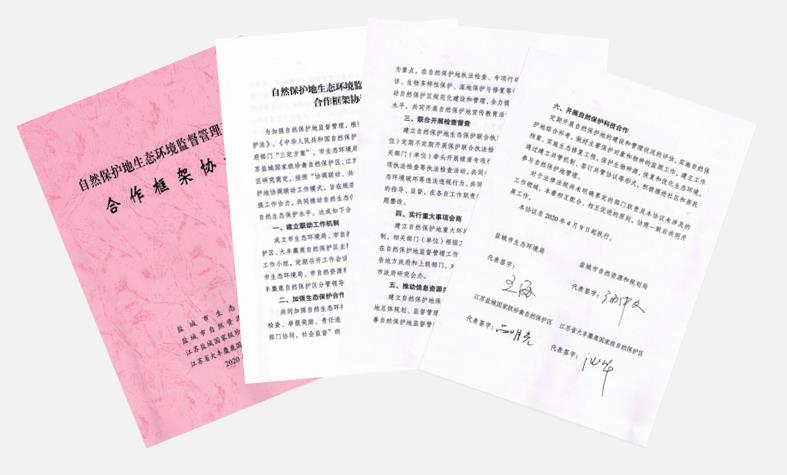 自然保护地生态环境监督管理
合作框架协
盐城市生
盐城市自然资
江苏盐城国家级珍
江苏省大丰麋鹿国
2020
自然保护地生态环境监
合作框架协
为加强自然保护地监督管理，根
护法》、《中华人民共和国自然保护
府部门“三定方案”，市生态环境局
苏盐城国家级珍禽自然保护区、江苏
区研究商定，按照“协调联动、共
护地协调联动工作模式，旨在规范
强工作合力，共同推动自然生态
自然生态保护水平，达成如下合
一、建立联动工作机制
成立市生态环境局、市自然
护区、大丰麋鹿自然保护区主
工作小组，定期召开工作会议
市生态环境局、市自然资源
丰麋鹿自然保护区分管领导
二、加强生态保护合作
共同加强自然生态环
检查、举报奖励、责任追
部门协同、社会监督”的
为重点，在自然保护地执法检查、专项行动
访、生物多样性保护、湿地保护与修复等
动自然保护区规范化建设和管理，全力提
水平。共同开展自然保护地宣传教育活
三、联合开展检查督查
建立自然保护地生态保护联合执
位）定期不定期开展保护联合执法检
关部门（单位）牵头开展核查专项
项执法检查等执法检查活动，共同
态环境破坏等违法违规行为。共同
的指导、监督，在各自工作职责
题整改。
四、实行重大事项会商
建立自然保护地重大环
制，相关部门（单位）根据工
在自然保护地监督管理工作
告地方政府和上级部门。对
市政府研究会办。
五、推动信息资源
建立自然保护地保
地总体规划、监督管理
善自然保护地监督管
六、开展自然保护科技合作
定期开展自然保护地的建设和管理状况的评估，实施自然保
护地综合科考，做好主要保护对象和物种的监测工作，建立工作
档案。实施生态修复工程，保护生物种源，恢复和优化生态环境。
通过建立共管机制、签订共管协议等形式，积极推进社区和居民
参与自然保护地管理。
对于法律法规尚未明确界定的部门职责及本协议未涉及的
工作领域，本着相互配合、相互促进的原则，协商一致后共同开
展工作。
本协议自2020年4月9日起执行。
盐城市生态环境局
盐城市自然资源和规划局
代表签字：
代表签字：
江苏盐城国家级珍禽自然保护区
江苏省大丰麋鹿国家级自然保护区
代表签字：
代表签字：